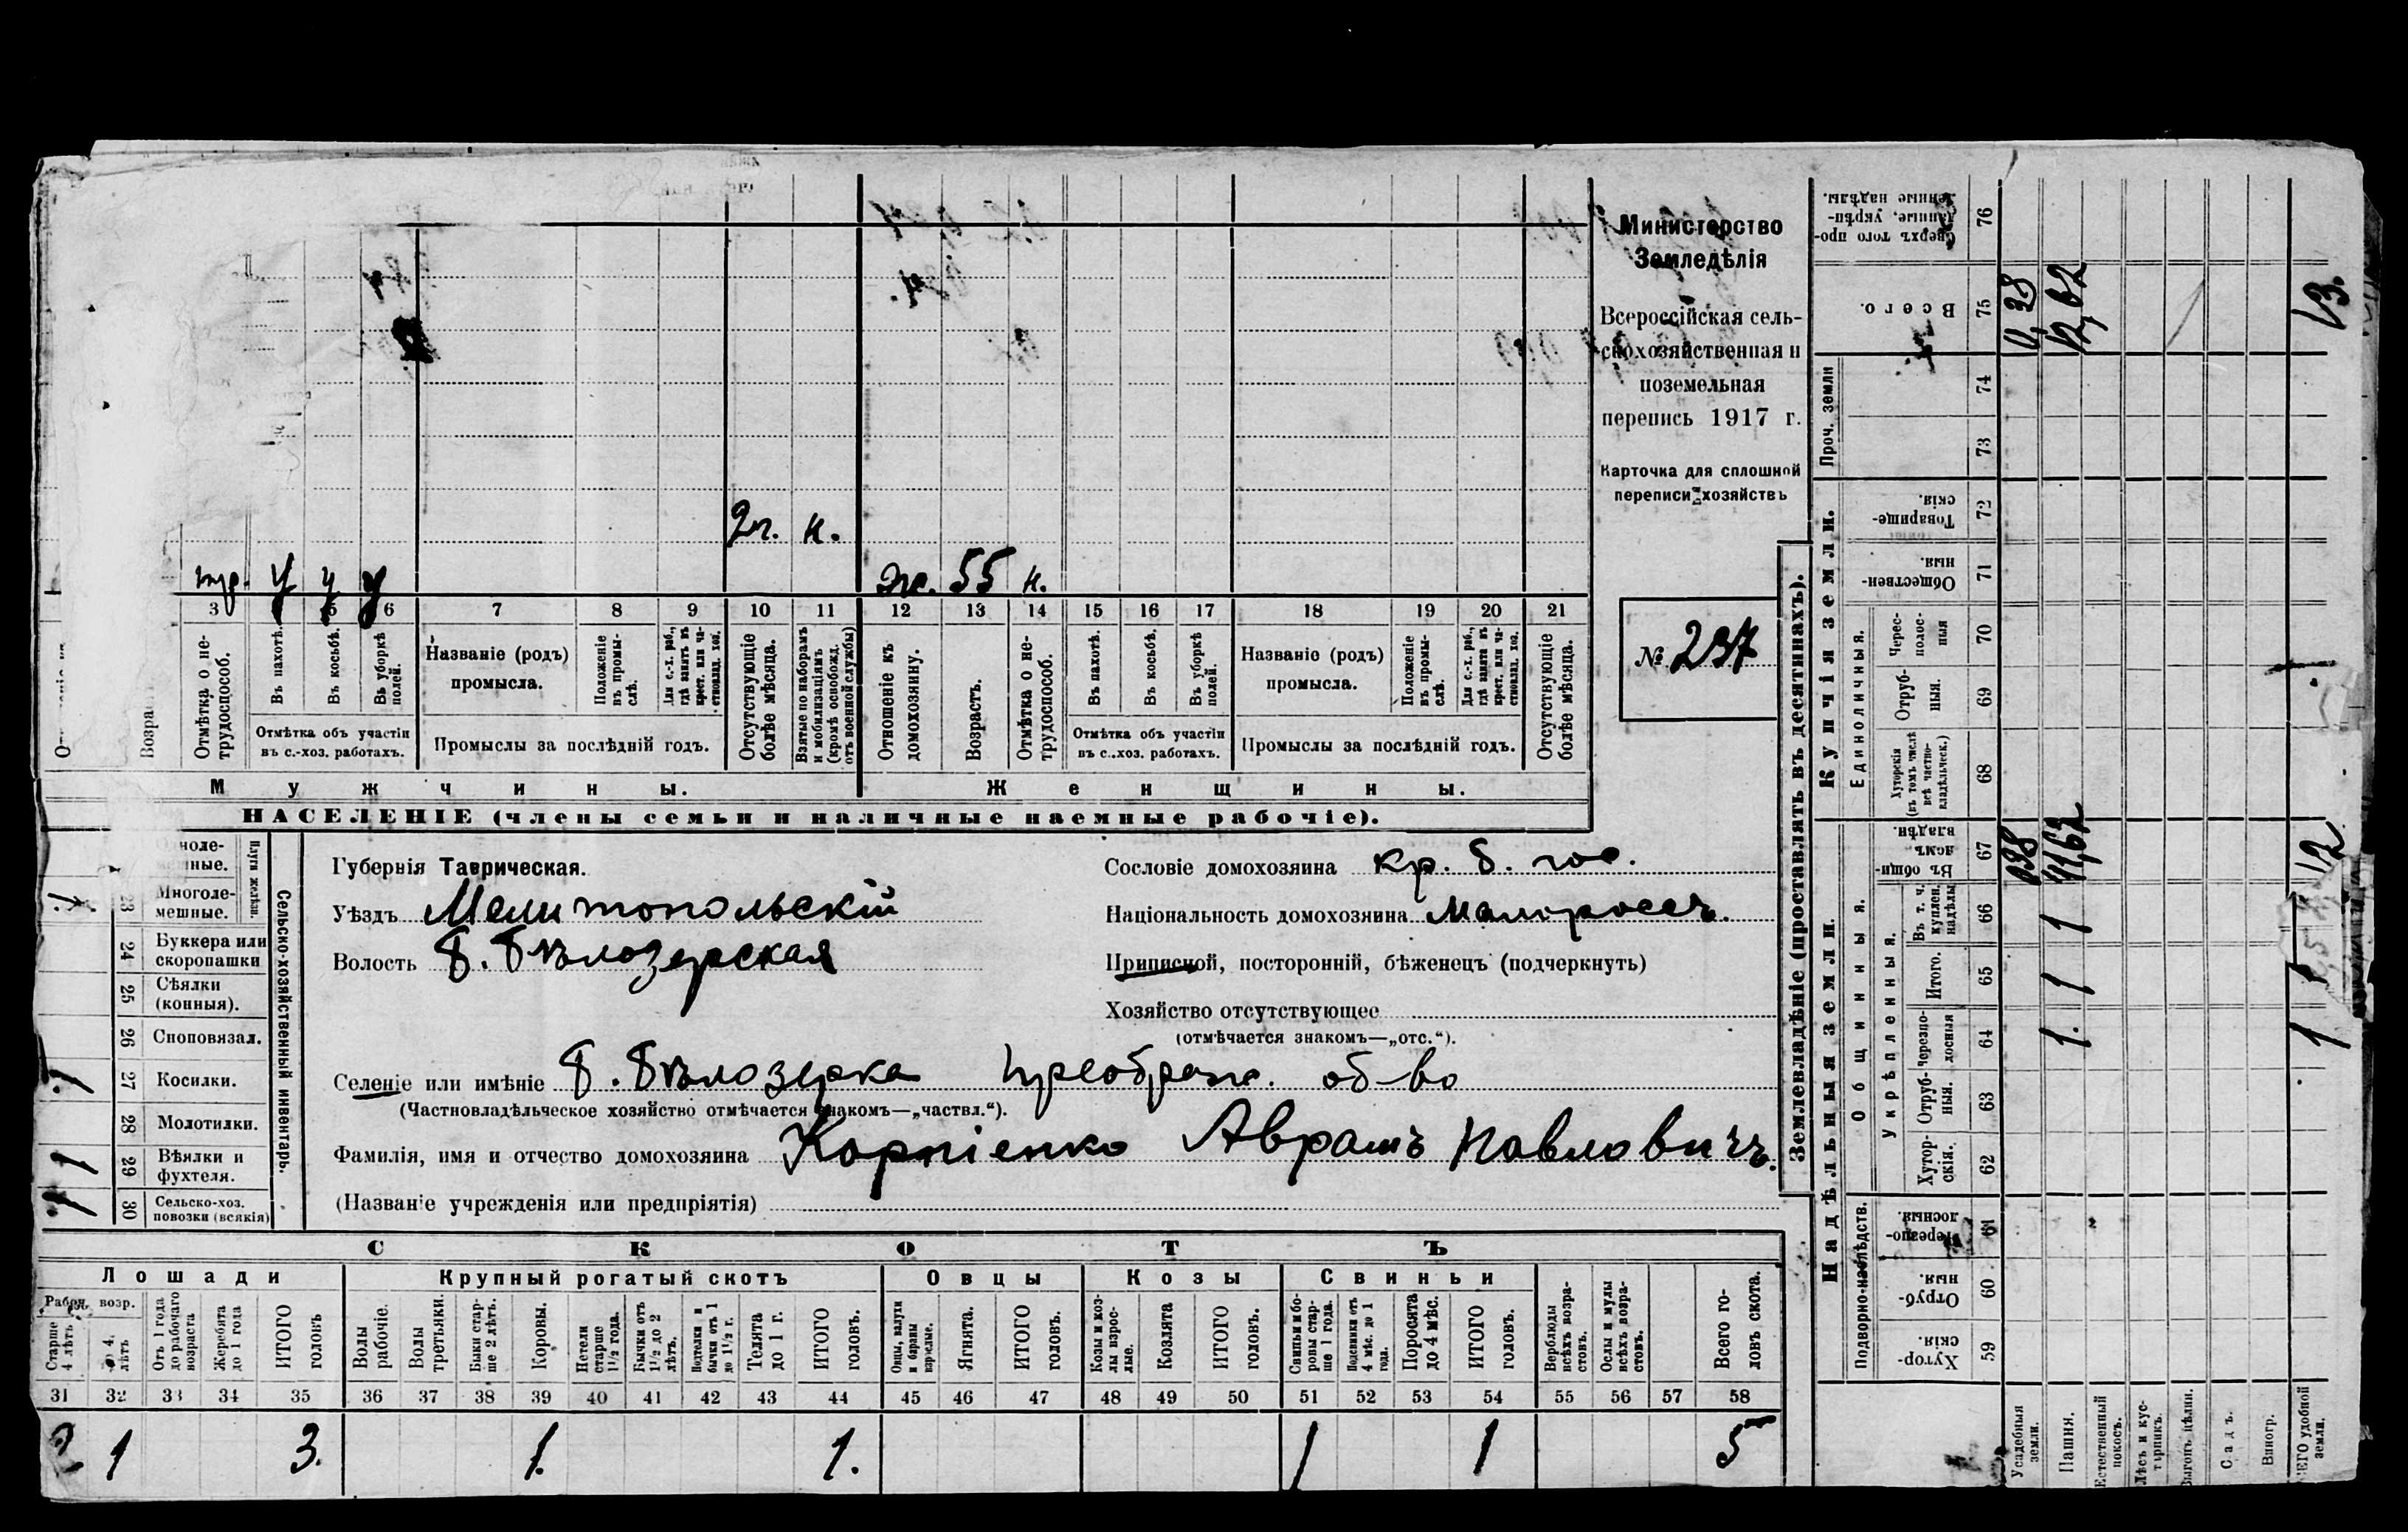 2г. н.
тр. у у у
ж. 55 н.
3 5 6 7 8 9 10 11 12 13 14 15 16 17 18 19 20 21
Отмѣтка о не-
трудоспособ.
Въ пахотѣ.
Въ косьбѣ.
Въ уборкѣ
полей.
Отмѣтка объ участіи
въ с.-хоз. работахъ.
Названіе (родъ)
промысла.
Положеніе
въ промы-
слѣ.
Для с.-х. раб.,
гдѣ занятъ въ
крест. или ча-
стновлад. хоз.
Промыслы за послѣдній годъ.
Отсутствующіе
болѣе мѣсяца.
Взятые по наборамъ
и мобилизаціямъ
(кромѣ освобожд.
отъ военной службы)
Отношеніе къ
домохозяину.
Возрастъ.
Отмѣтка о не-
трудоспособ.
Въ пахотѣ.
Въ косьбѣ.
Въ уборкѣ
полей.
Отмѣтка объ участіи
въ с.-хоз. работахъ.
Названіе (родъ)
промысла.
Положеніе
въ промы-
слѣ.
Для с.-х. раб.,
гдѣ занята въ
крест. или ча-
стновлад. хоз.
Промыслы за послѣдній годъ.
Отсутствующіе
болѣе мѣсяца.
Мужчины.
Женщины.
НАСЕЛЕНІЕ (члены семьи и наличные наемные рабочіе).
Министерство
Земледѣлія
Всероссійская сель-
скохозяйственная и
поземельная
перепись 1917 г.
Карточка для сплошной
переписи хозяйствъ
№ 237
Сельско-хозяйственный инвентарь.
Плуги желѣзн.
23 Многоле-
мешные.
1
24 Буккера или
скоропашки
25 Сѣялки
(конныя).
26 Сноповязал.
27 Косилки.
1
28 Молотилки.
29 Вѣялки и
фухтеля.
1
30 Сельско-хоз.
повозки (всякія)
1
Губернія Таврическая.
Уѣздъ Мелитопольскій
Волость Б. Бѣлозерская
Сословіе домохозяина кр. б. гос.
Національность домохозяина малороссъ.
Приписной, посторонній, бѣженецъ (подчеркнуть)
Хозяйство отсутствующее
(отмѣчается знакомъ—„отс.“).
Селеніе или имѣніе Б. Бѣлозерка Преображ. об-во
(Частновладѣльческое хозяйство отмѣчается знакомъ—„частвл.“).
Фамилія, имя и отчество домохозяина Корніенко Аврамъ Павловичъ.
(Названіе учрежденія или предпріятія)
СКОТЪ
Лошади Крупный рогатый скотъ Овцы Козы Свиньи
Рабоч. возр.
Старше
4 лѣтъ
до 4.
лѣтъ
Отъ 1 года
до рабочаго
возраста
Жеребята
до 1 года
ИТОГО
головъ
Волы
рабочіе.
Волы
третьяки.
Быки стар-
ше 2 лѣтъ.
Коровы.
Нетели
старше
1½ года.
Бычки отъ
1½ до 2
лѣтъ.
Подтелки и
бычки отъ 1
до 1½ г.
Телята
до 1 г.
ИТОГО
головъ.
Овцы, валухи
и бараны
взрослые.
Ягнята.
ИТОГО
головъ.
Козы и коз-
лы взрос-
лые.
Козлята
ИТОГО
головъ.
Свиньи и бо-
ровы стар-
ше 1 года.
Подсвинки отъ
4 мѣс. до 1
года.
Поросята
до 4 мѣс.
ИТОГО
головъ.
Верблюды
всѣхъ возра-
стовъ.
Ослы и мулы
всѣхъ возра-
стовъ.
Всего го-
ловъ скота.
31 32 33 34 35 36 37 38 39 40 41 42 43 44 45 46 47 48 49 50 51 52 53 54 55 56 57 58
2 1 3. 1. 1. 1 1 5
Землевладѣніе (проставлять въ десятинахъ).
Купчія земли.
Надѣльныя земли.
Проч. земли
Единоличныя.
Общинныя.
Укрѣпленныя.
Подворно-наслѣдств.
Сверхъ того про-
данные, укрѣп-
ленные надѣлы.
76
Всего.
75
74
73
Товарище-
скія.
72
Обществен-
ныя.
71
Черес-
полос-
ныя
70
Отруб-
ныя.
69
Хуторскія
(въ томъ числѣ
всѣ частно-
владѣльческ.)
68
Въ общи-
номъ
владѣн.
67
Въ т. ч.
куплен.
надѣлы
66
Итого.
65
Черезпо-
лосныя
64
Отруб-
ныя.
63
Хутор-
скія.
62
Черезпо-
лосныя.
61
Отруб-
ныя.
60
Хутор-
скія.
59
Усадебныя
земли.
0,38
Пашня.
1. 1 1 11,62 12,62
Естественный
покосъ.
Лѣсъ и кус-
тарникъ.
Выгонъ цѣлин.
Садъ.
Виногр.
ВСЕГО удобной
земли.
1 1 1 12 13.